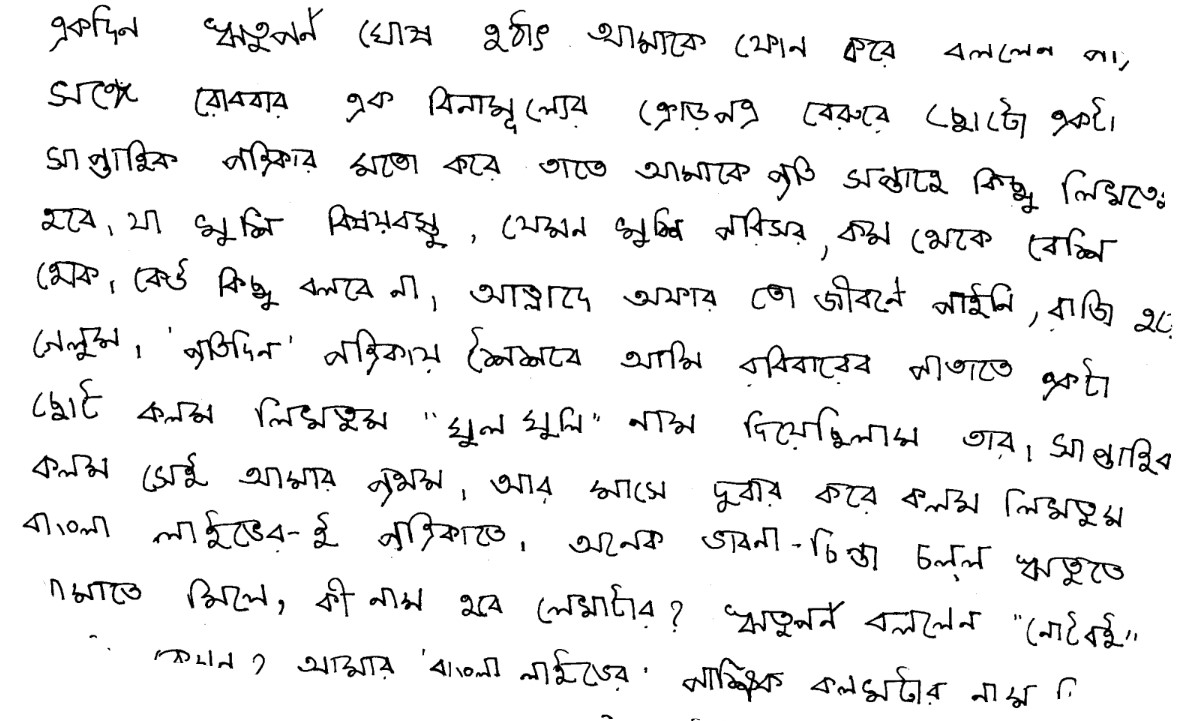 একদিন ঋতুপর্ণ ঘোষ হঠাৎ আমাকে ফোন করে বললেন না,
সঙ্গে রোববার এক বিনামূল্যের ক্রোড়পত্র বেরুবে ছোটো একটা
সাপ্তাহিক পত্রিকার মতো করে তাতে আমাকে প্রতি সপ্তাহে কিছু লিখতে
হবে, যা খুশি বিষয়বস্তু, যেমন খুশি পরিসর, কম থেকে বেশি
হোক, কেউ কিছু বলবে না, আহ্লাদে অফার তো জীবনে পাইনি, রাজি হয়ে
গেলুম, 'প্রতিদিন' পত্রিকায় শৈশবে আমি রবিবারের পাতাতে একটা
ছোট কলম লিখতুম "ঘুলঘুলি" নাম দিয়েছিলাম তার, সাপ্তাহিক
কলম সেই আমার প্রথম, আর মাসে দুবার করে কলম লিখতুম
বাংলা লাইভের-ই পত্রিকাতে, অনেক ভাবনা-চিন্তা চলল ঋতুতে
মাতে মিলে, কী নাম হবে লেখাটার? ঋতুপর্ণ বললেন "নোটবই"
আমার 'বাংলা লাইভের' পাক্ষিক কলমটার নাম